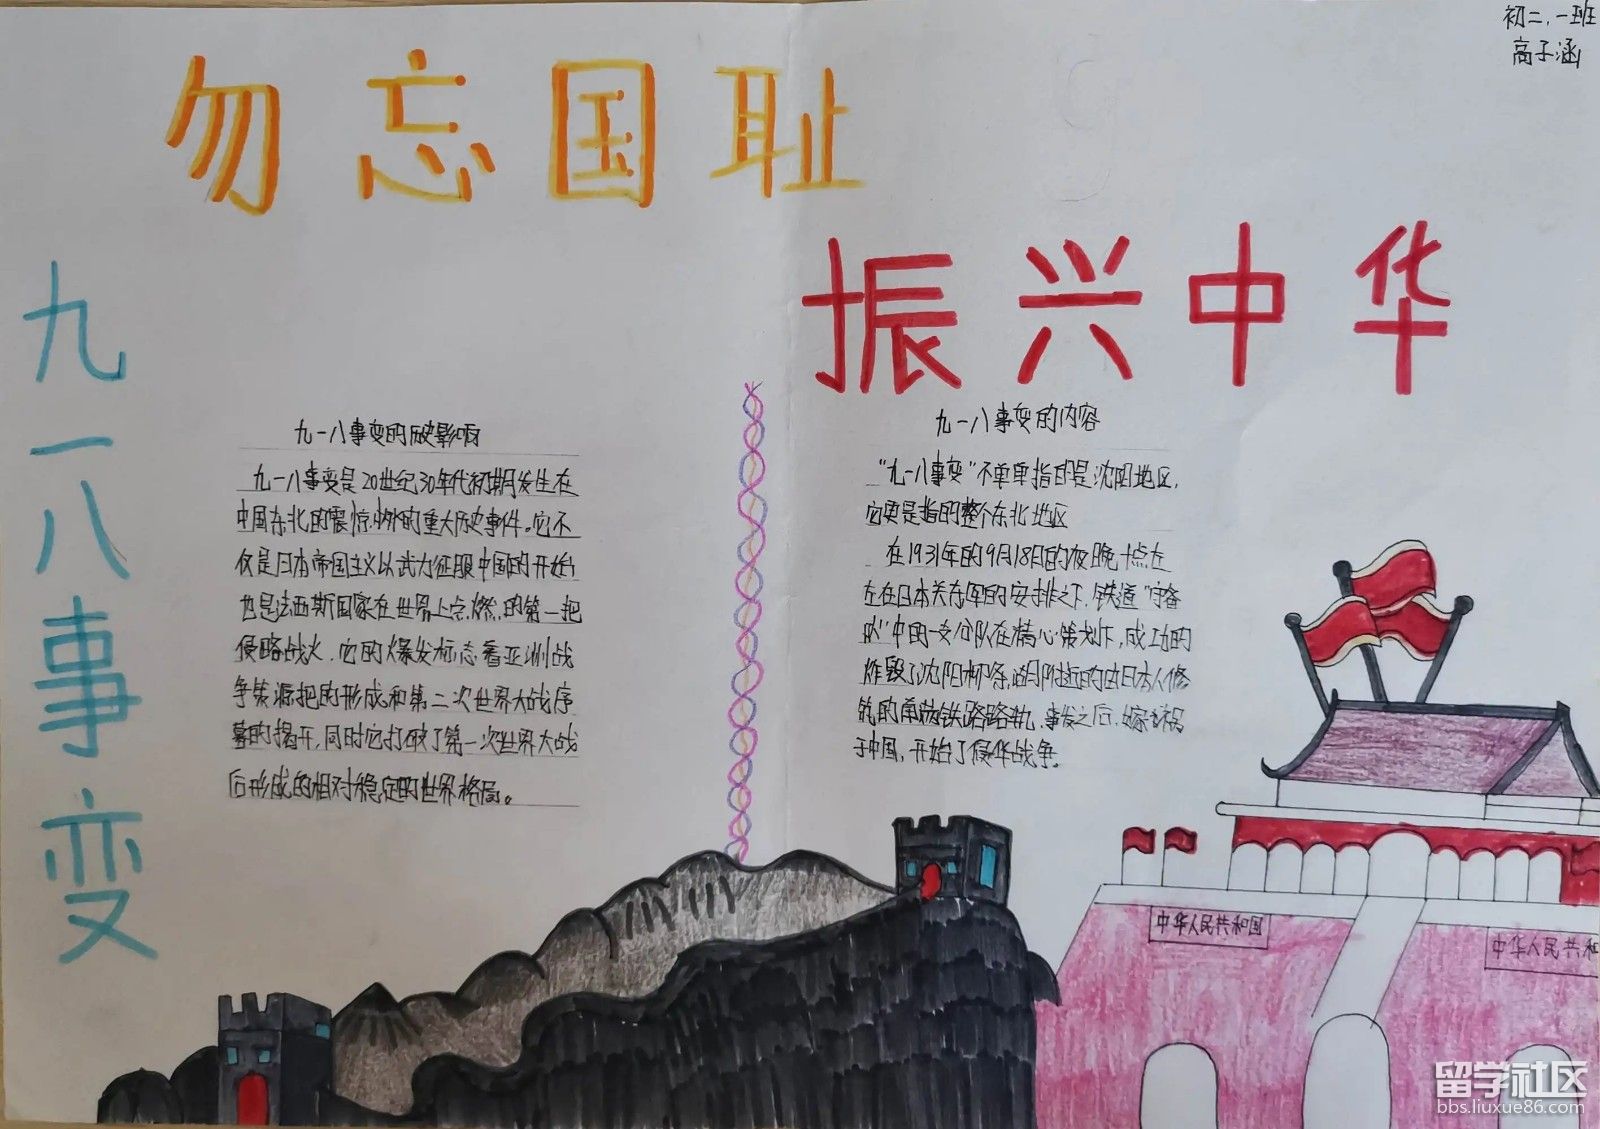 初二,一班
高子涵
勿忘国耻
振兴中华
九一八事变
九一八事变的历史影响
九一八事变是20世纪30年代初期发生在
中国东北的震惊中外的重大历史事件。它不
仅是日本帝国主义以武力征服中国的开始,
也是法西斯国家在世界上点燃的第一把
侵略战火,它的爆发标志着亚洲战
争策源把的形成和第二次世界大战序
幕的揭开,同时它打破了第一次世界大战
后形成的相对稳定的世界格局。
九一八事变的内容
"九一八事变"不单单指的是沈阳地区,
它更是指的整个东北地区
在1931年的9月18日的夜晚十点左
左在日本关东军的安排之下,铁道"守备
队"中的一支分队在精心策划下,成功的
炸毁了沈阳柳条湖附近的由日本人修
筑的南满铁路路轨,事发之后,嫁祸
于中国,开始了侵华战争。
中华人民共和国
中华人民共和
留学社区
bbs.liuxue86.com